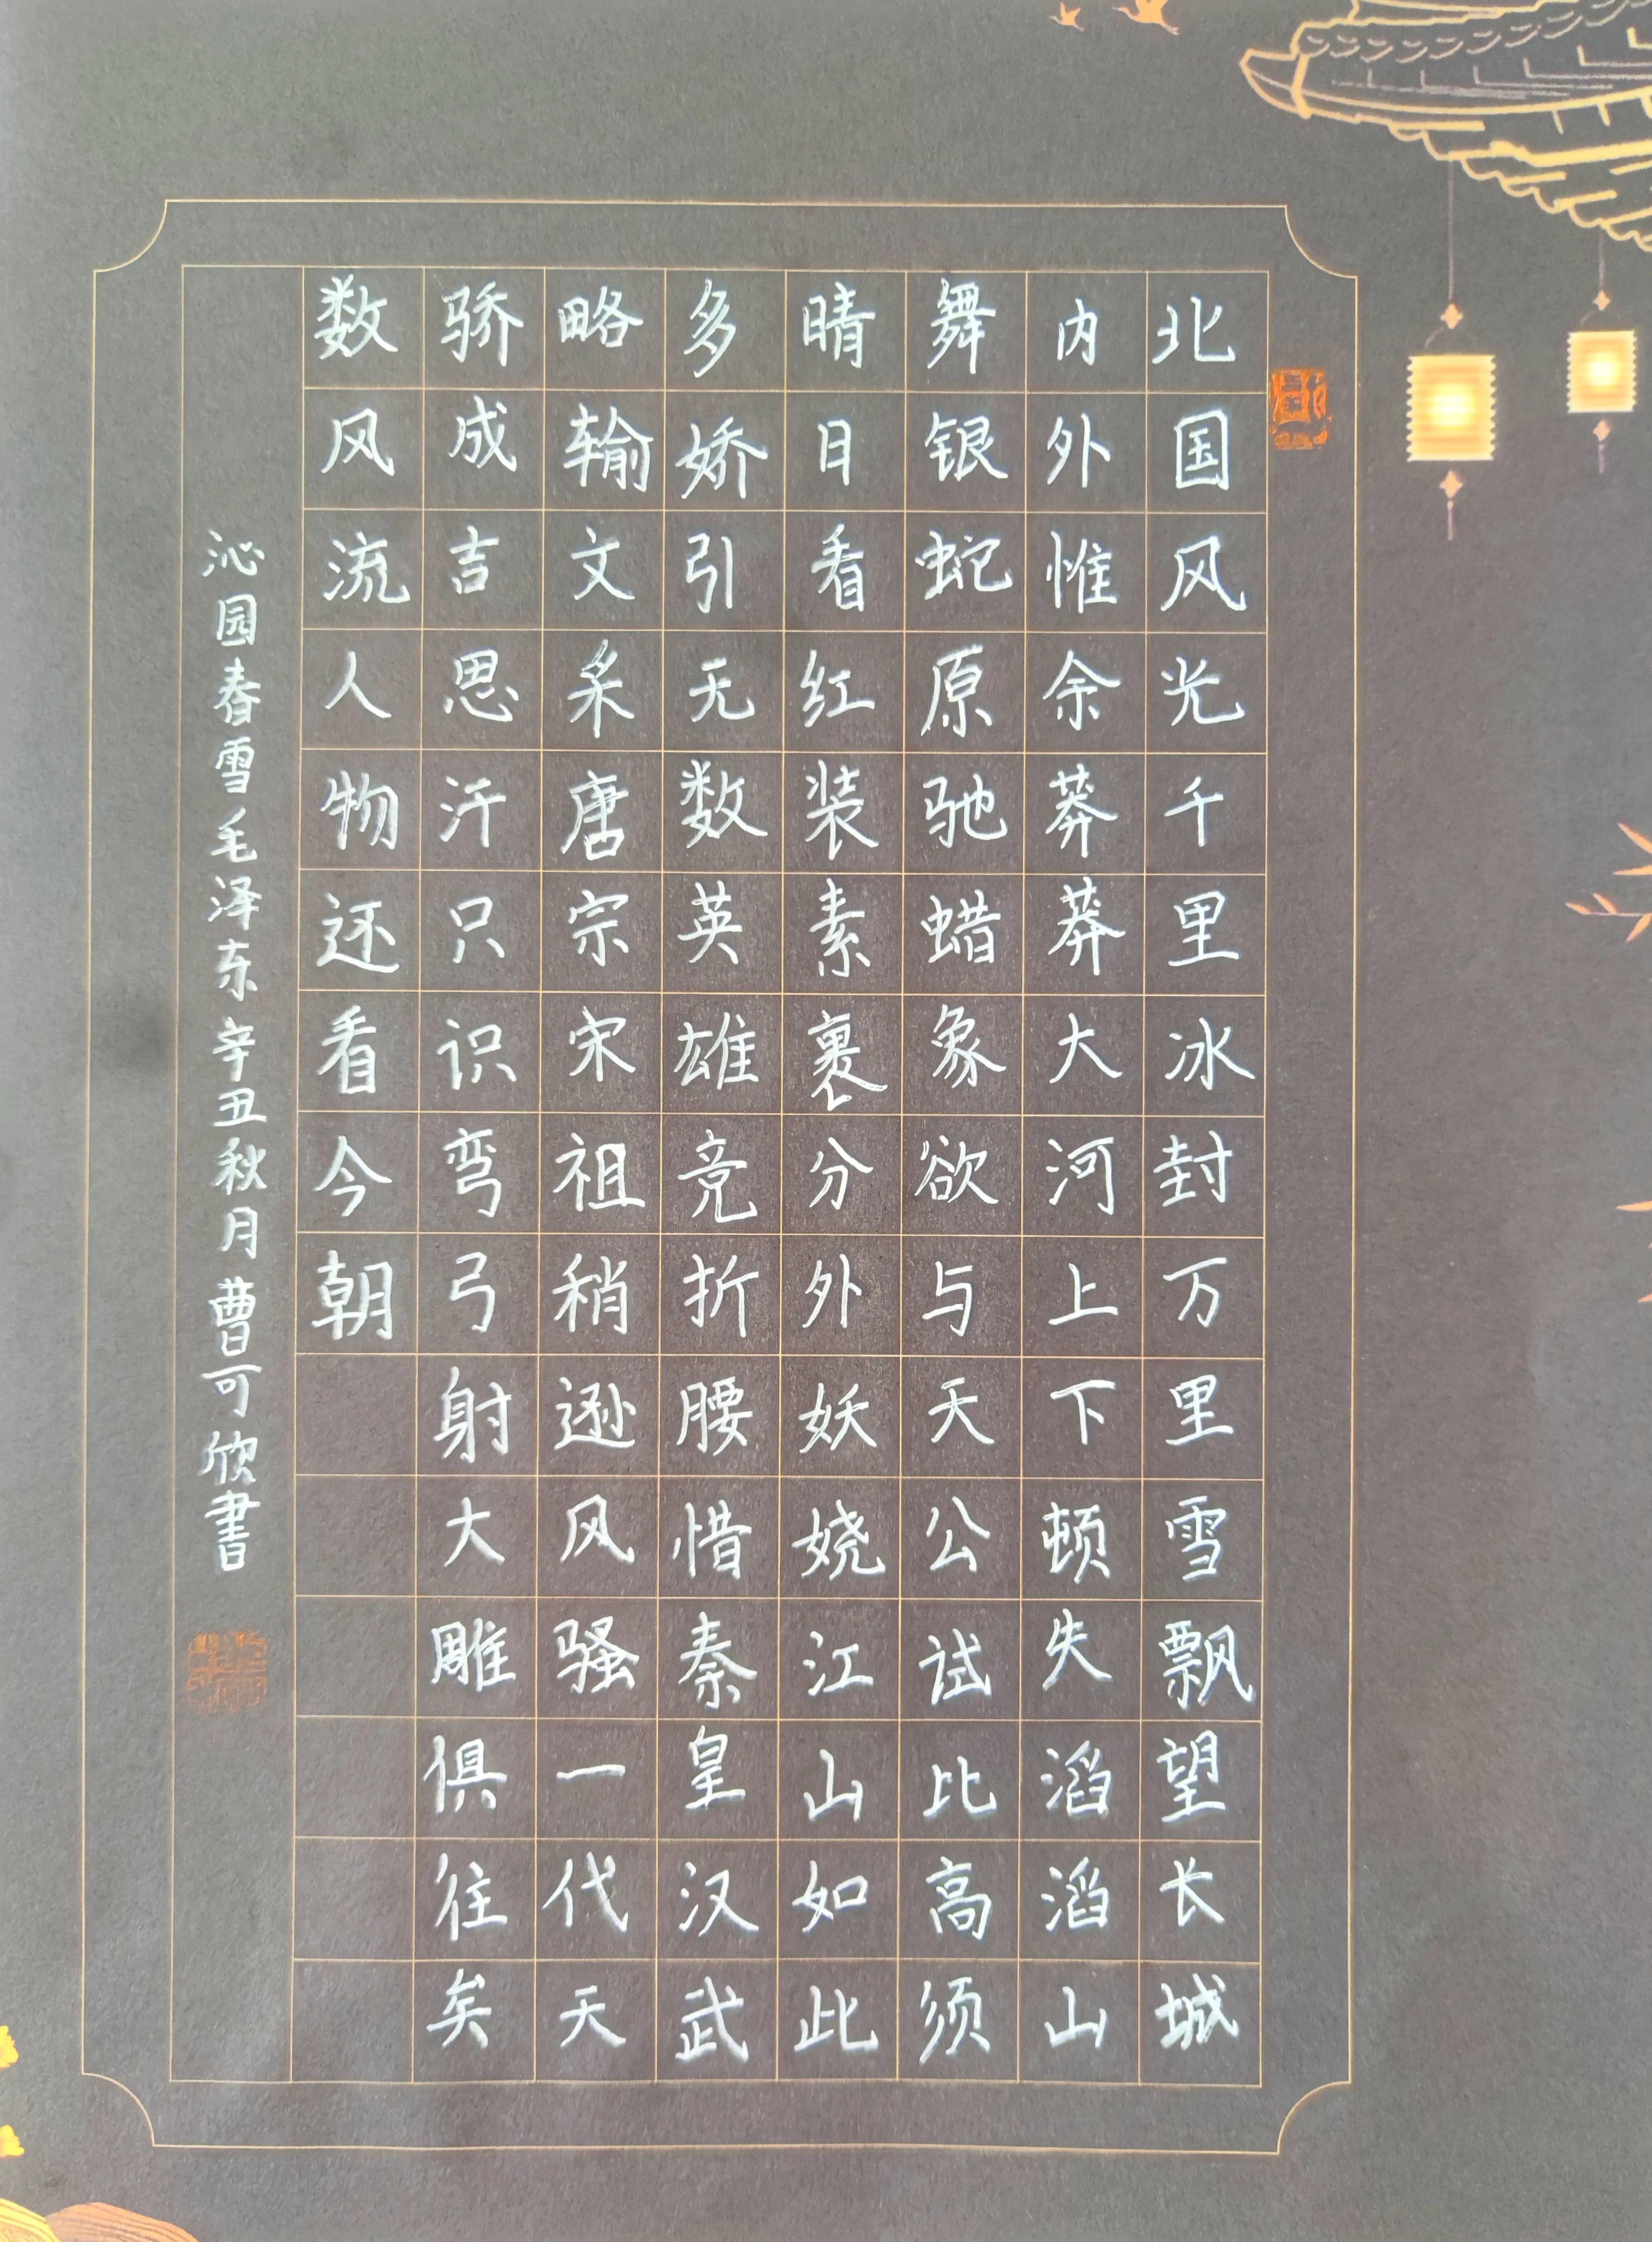 北国风光千里冰封万里雪飘望长城
内外惟余莽莽大河上下顿失滔滔山
舞银蛇原驰蜡象欲与天公试比高须
晴日看红装素裹分外妖娆江山如此
多娇引无数英雄竞折腰惜秦皇汉武
略输文采唐宗宋祖稍逊风骚一代天
骄成吉思汗只识弯弓射大雕俱往矣
数风流人物还看今朝
沁园春雪毛泽东辛丑秋月曹可欣書